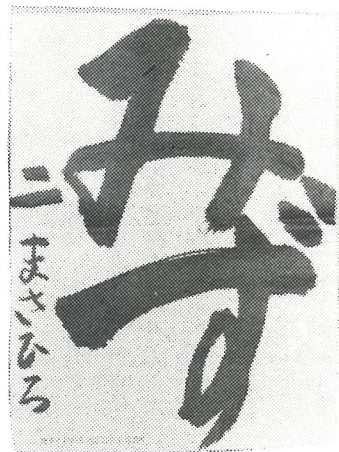 みず
二 まさひろ